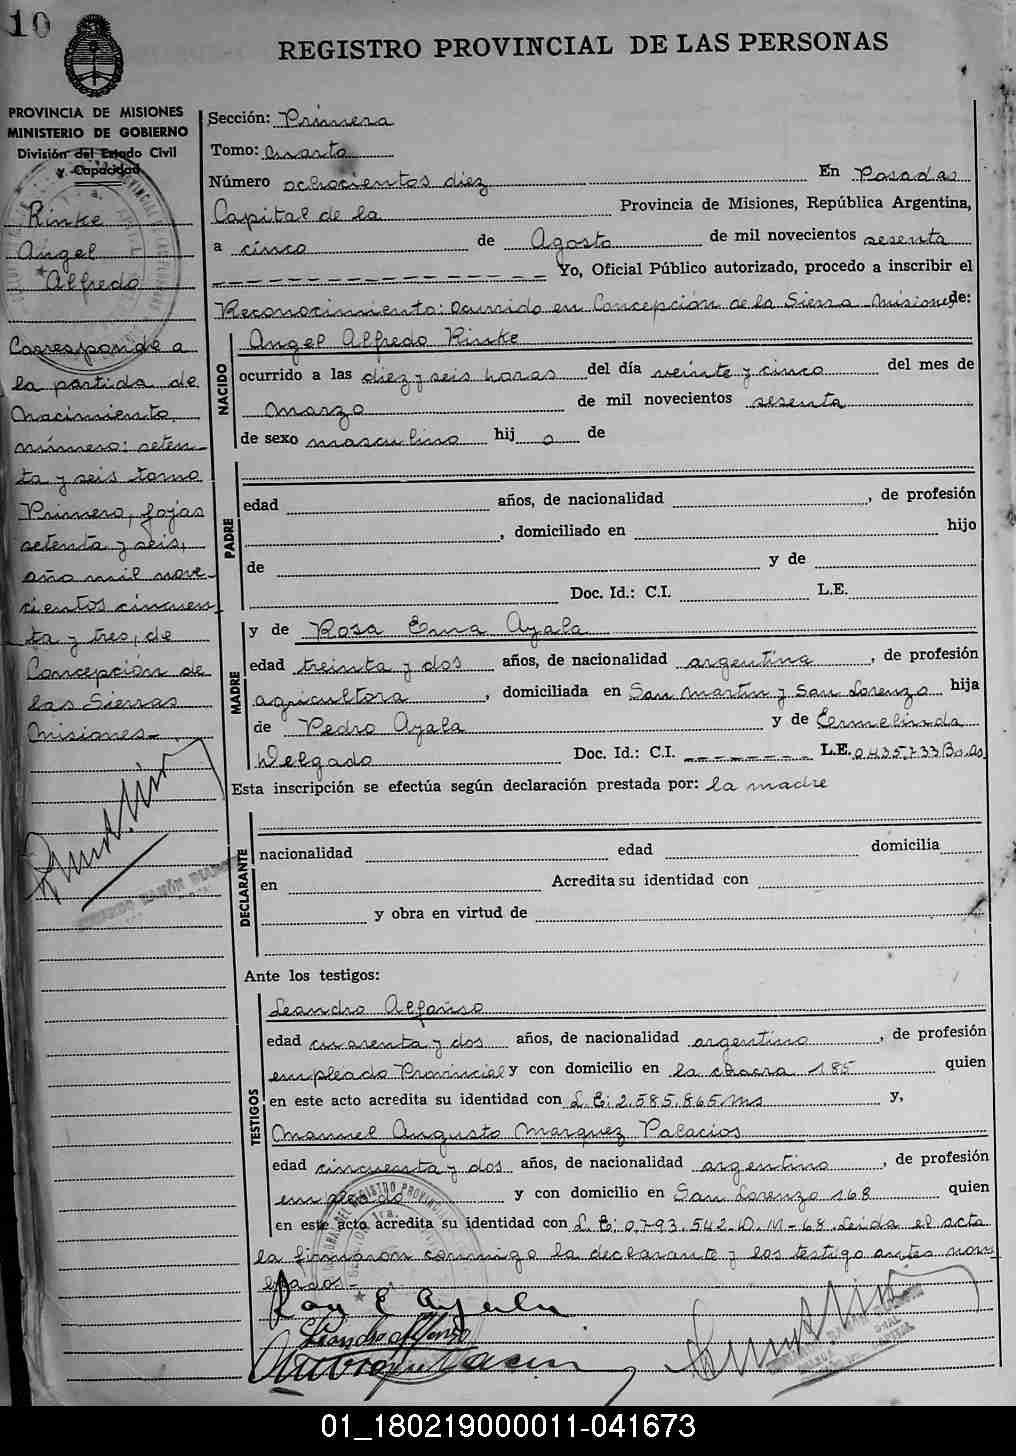 10
REGISTRO PROVINCIAL DE LAS PERSONAS
PROVINCIA DE MISIONES
MINISTERIO DE GOBIERNO
División del Estado Civil
y Capacidad
Rinke
Angel
Alfredo
Corresponde a
la partida de
Nacimiento
número: seten-
ta y seis tomo
Primero, fojas
setenta y seis,
año mil nove-
cientos cincuen-
ta y tres, de
Concepción de
las Sierras
Misiones-
Sección: Primera
Tomo: Cuarto
Número ochocientos diez En Posadas
Capital de la Provincia de Misiones, República Argentina,
a cinco de Agosto de mil novecientos sesenta
Yo, Oficial Público autorizado, procedo a inscribir el
Reconocimiento: Ocurrido en Concepción de la Sierra Misiones de:
NACIDO
Angel Alfredo Rinke
ocurrido a las diez y seis horas del día veinte y cinco del mes de
marzo de mil novecientos sesenta
de sexo masculino hij o de
PADRE
edad años, de nacionalidad , de profesión
, domiciliado en hijo
de y de
Doc. Id.: C.I. L.E.
MADRE
y de Rosa Ema Ayala
edad treinta y dos años, de nacionalidad argentina , de profesión
agricultora , domiciliada en San Martin y San Lorenzo hija
de Pedro Ayala y de Ermelinda
Delgado Doc. Id.: C.I. - - - - - - - - L.E. 0.435.733 Bs.As.
Esta inscripción se efectúa según declaración prestada por: la madre
DECLARANTE
nacionalidad edad domicilia
en Acredita su identidad con
y obra en virtud de
Ante los testigos:
TESTIGOS
Leandro Alfonso
edad cuarenta y dos años, de nacionalidad argentino , de profesión
empleado Provincial y con domicilio en la chacra 185 quien
en este acto acredita su identidad con L.E: 2.585.865 Ms y,
Manuel Augusto Marquez Palacios
edad cincuenta y dos años, de nacionalidad argentino , de profesión
empleado y con domicilio en San Lorenzo 168 quien
en este acto acredita su identidad con L.E: 0.793.542.D.M-68. Leida el acta
la firmaron conmigo la declarante y los testigo antes nom
brados-
Rosa E Ayala
Leandro Alfonso
01_180219000011-041673